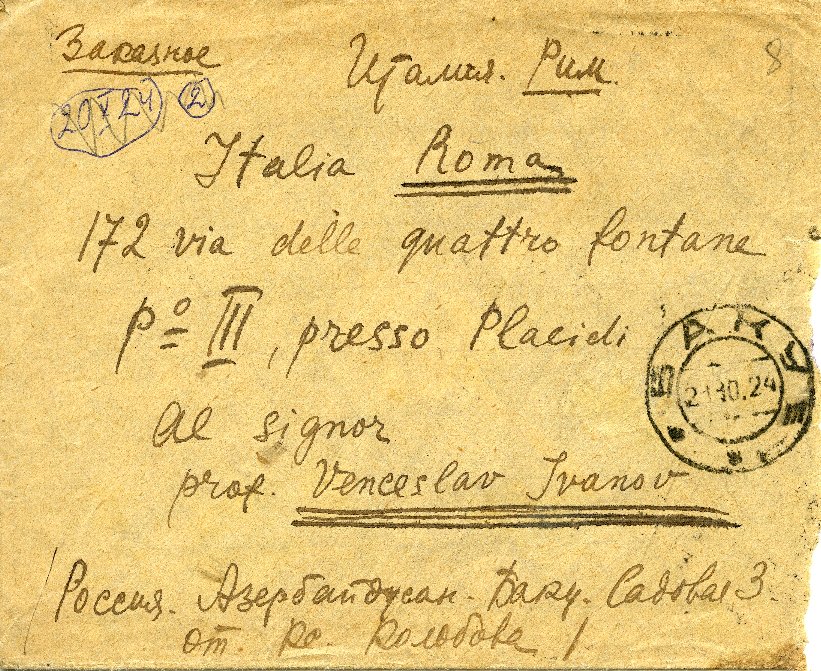 Заказное
Италия. Рим.
8
20 X 24 2
Italia Roma
172 via delle quattro fontane
Pº III, presso Placidi
БАКУ
24
Al signor
prof. Venceslav Ivanov
Россия. Азербайджан. Баку. Садовая 3.
от